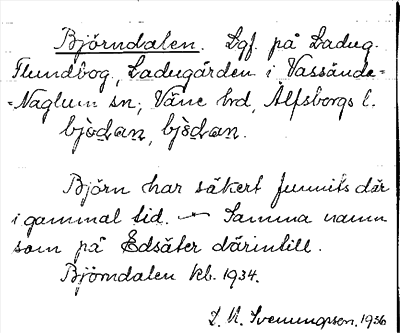 Björndalen. Lgf. på Ladug.
Flundbog, Ladugården i Vassände-
-Naglum sn; Väne hd, Älfsborgs l.
bjò̤dan, bjɛ̀dan.
Björn har säkert funnits där
i gammal tid. — Samma namn
som på Edsäter därintill.
Björndalen kb. 1934.
D. A. Svenungsson. 1936